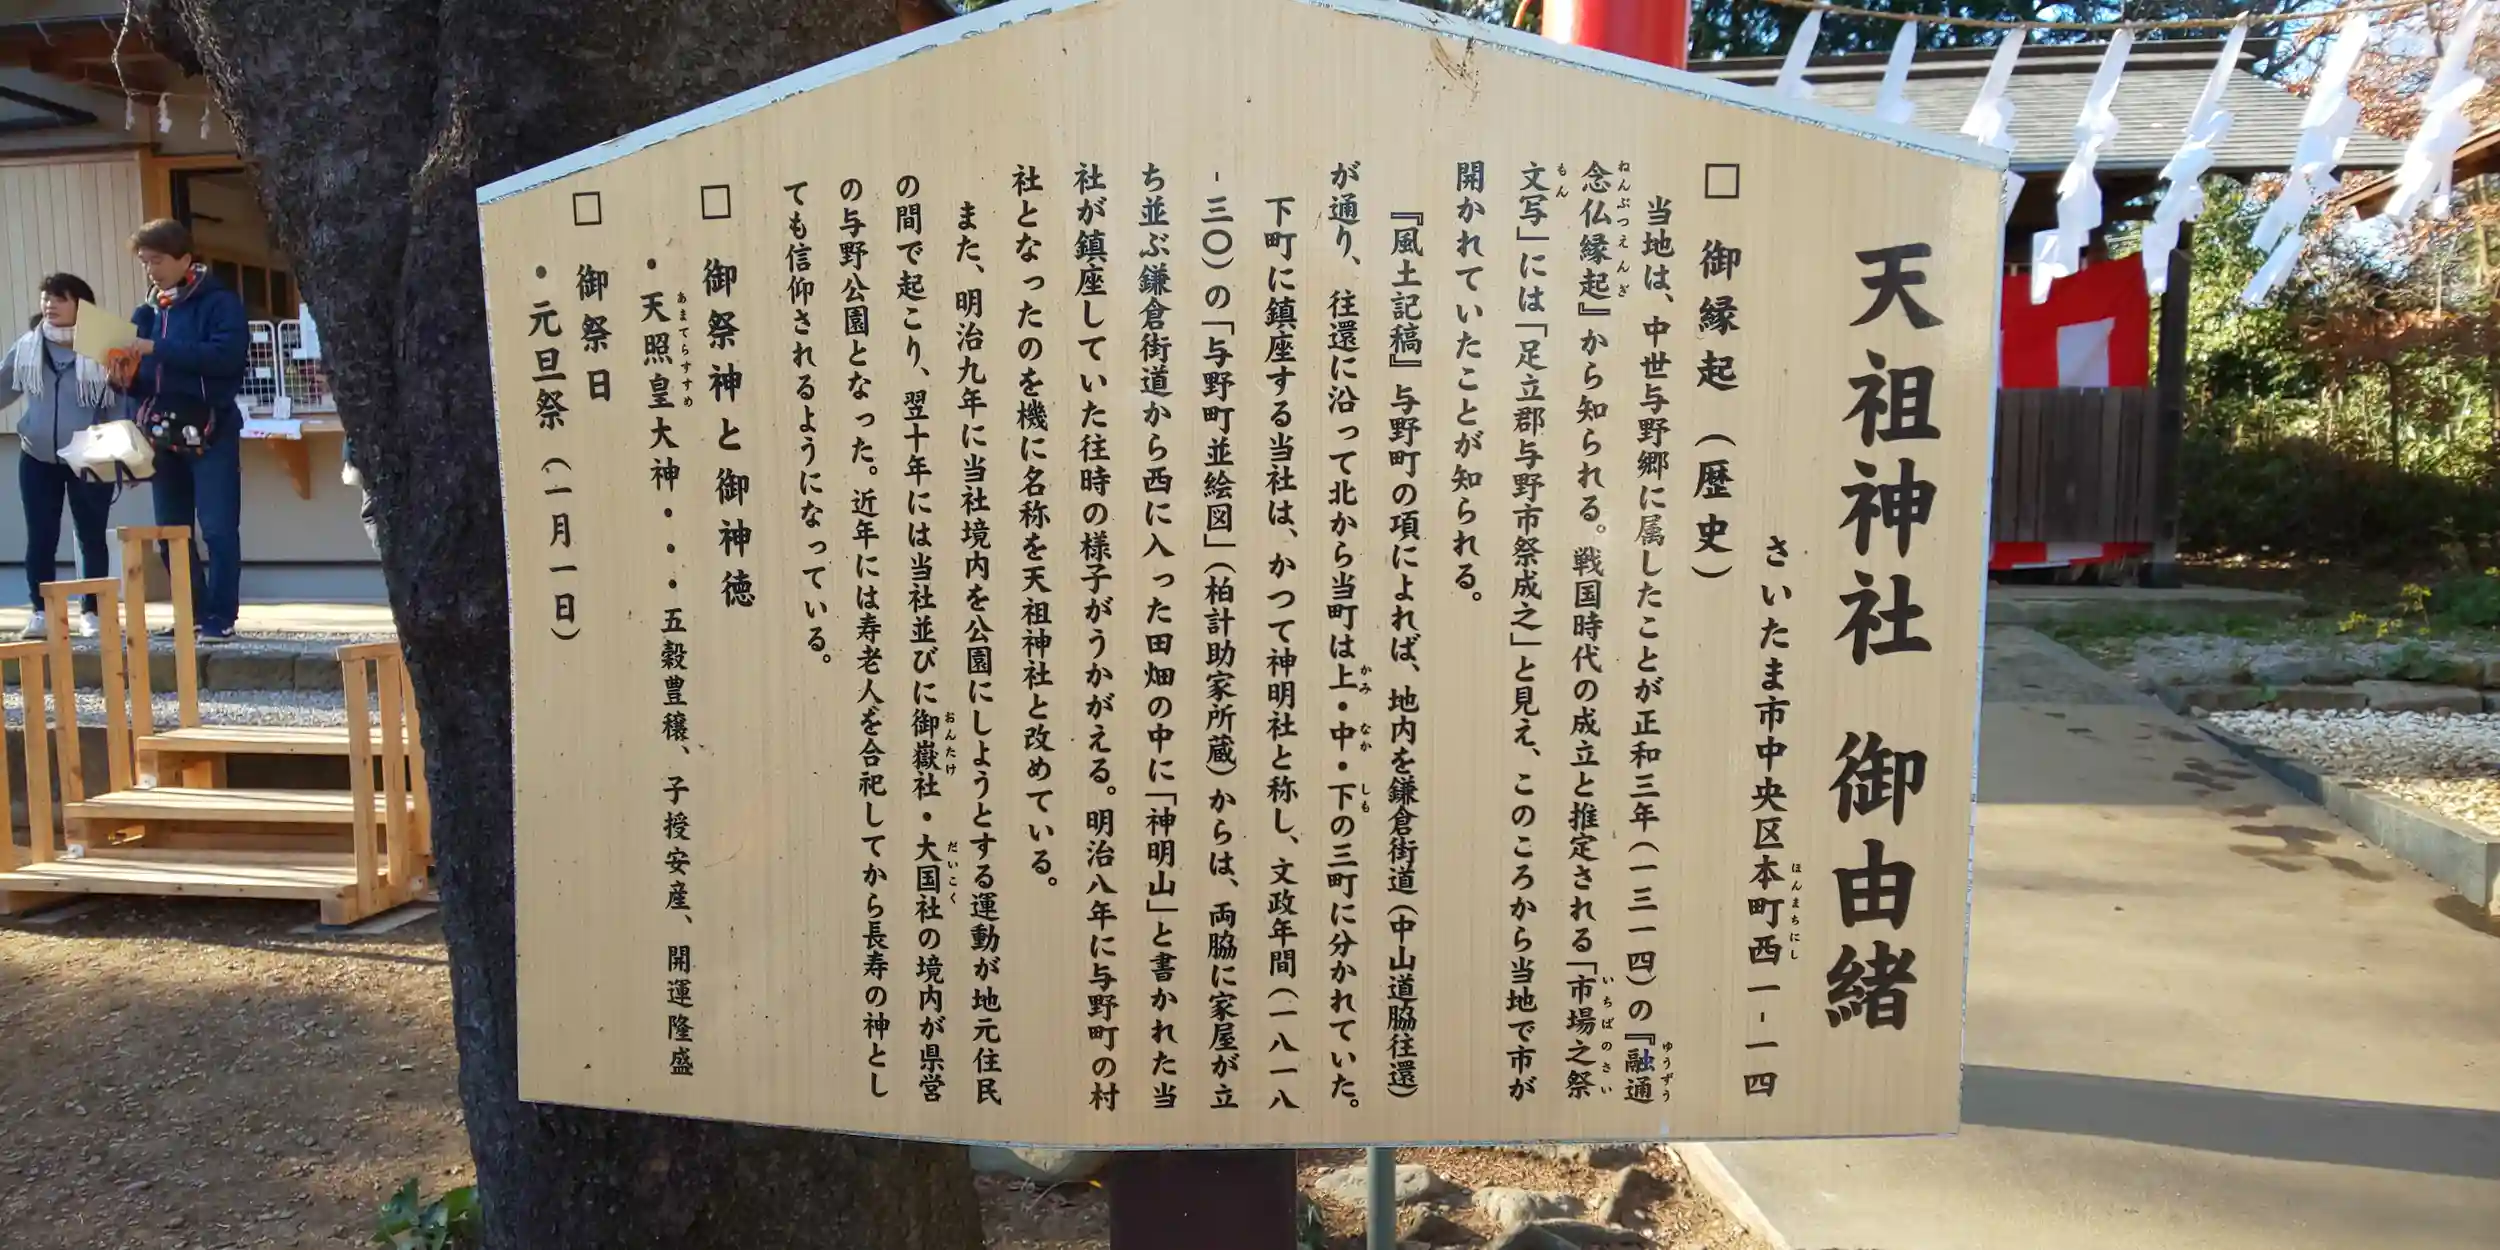 天祖神社 御由緒
さいたま市中央区本町西一-一一四
ほんまちにし
□ 御縁起(歴史)
当地は、中世与野郷に属したことが正和三年(一三一四)の『融通
ゆうずう
念仏縁起』から知られる。戦国時代の成立と推定される「市場之祭
ねんぶつえんぎ
いちばのさい
文写」には「足立郡与野市祭成之」と見え、このころから当地で市が
もん
開かれていたことが知られる。
『風土記稿』与野町の項によれば、地内を鎌倉街道(中山道脇往還)
が通り、往還に沿って北から当町は上・中・下の三町に分かれていた。
かみ なか しも
下町に鎮座する当社は、かつて神明社と称し、文政年間(一八一八
-三〇)の「与野町並絵図」(柏計助家所蔵)からは、両脇に家屋が立
ち並ぶ鎌倉街道から西に入った田畑の中に「神明山」と書かれた当
社が鎮座していた往時の様子がうかがえる。明治八年に与野町の村
社となったのを機に名称を天祖神社と改めている。
また、明治九年に当社境内を公園にしようとする運動が地元住民
の間で起こり、翌十年には当社並びに御嶽社・大国社の境内が県営
おんたけ だいこく
の与野公園となった。近年には寿老人を合祀してから長寿の神とし
ても信仰されるようになっている。
□ 御祭神と御神徳
・天照皇大神・・・五穀豊穣、子授安産、開運隆盛
あまてらすすめ
□ 御祭日
・元旦祭(一月一日)